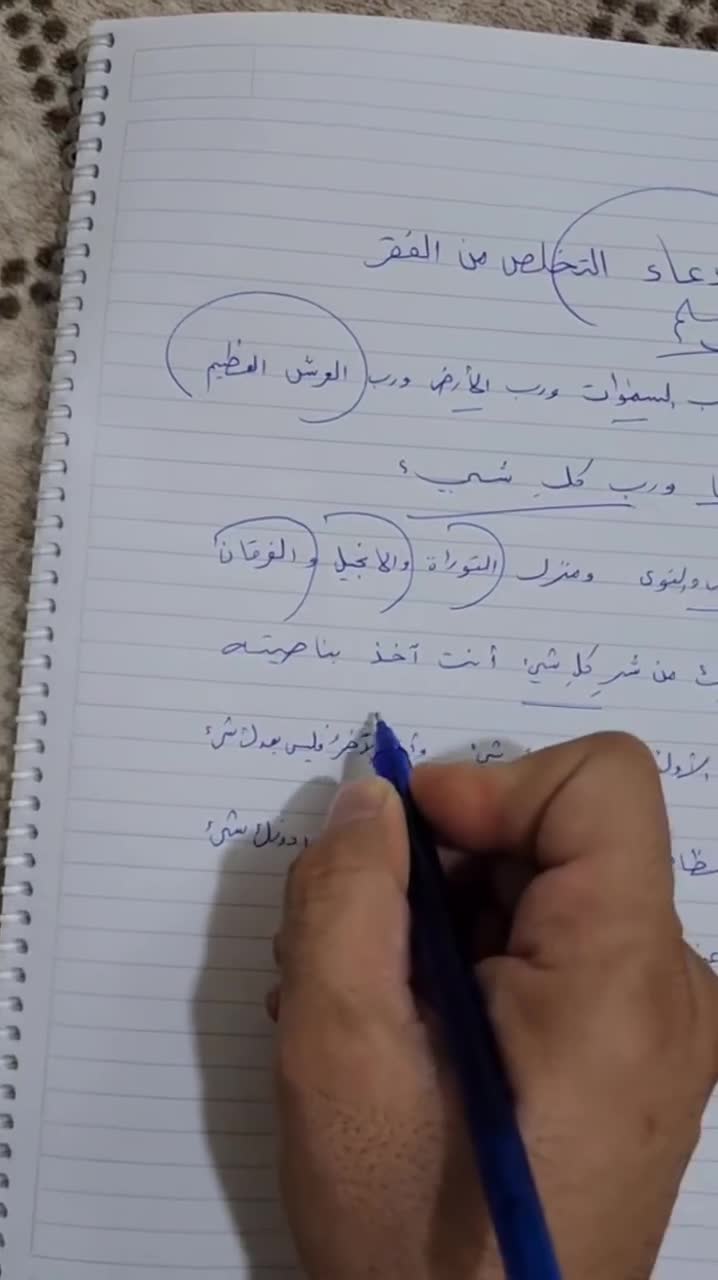 دعاء التخلص من الفقر
السمٰوات ورب الأرض ورب العرش العظيم
ورب كلِ شيء
والنوى ومنزل التوراة والانجيل والفرقان
من شرِ كلِ شيئ أنت آخذ بناصيته
الأول شئ الآخرُ فليس بعدك شئ
دونك شئ